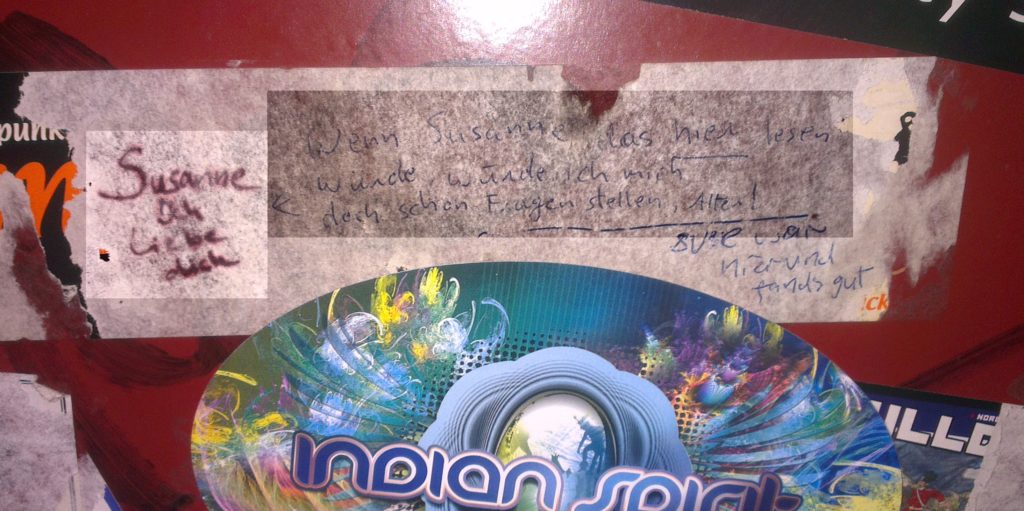 punk
Susanne
Ich
Liebe
dich
Wenn Susanne das hier lesen
würde, würde ich mich
doch schon Fragen stellen, Alter!
war
hier und
fands gut
ick
INDIAN SPIRIT